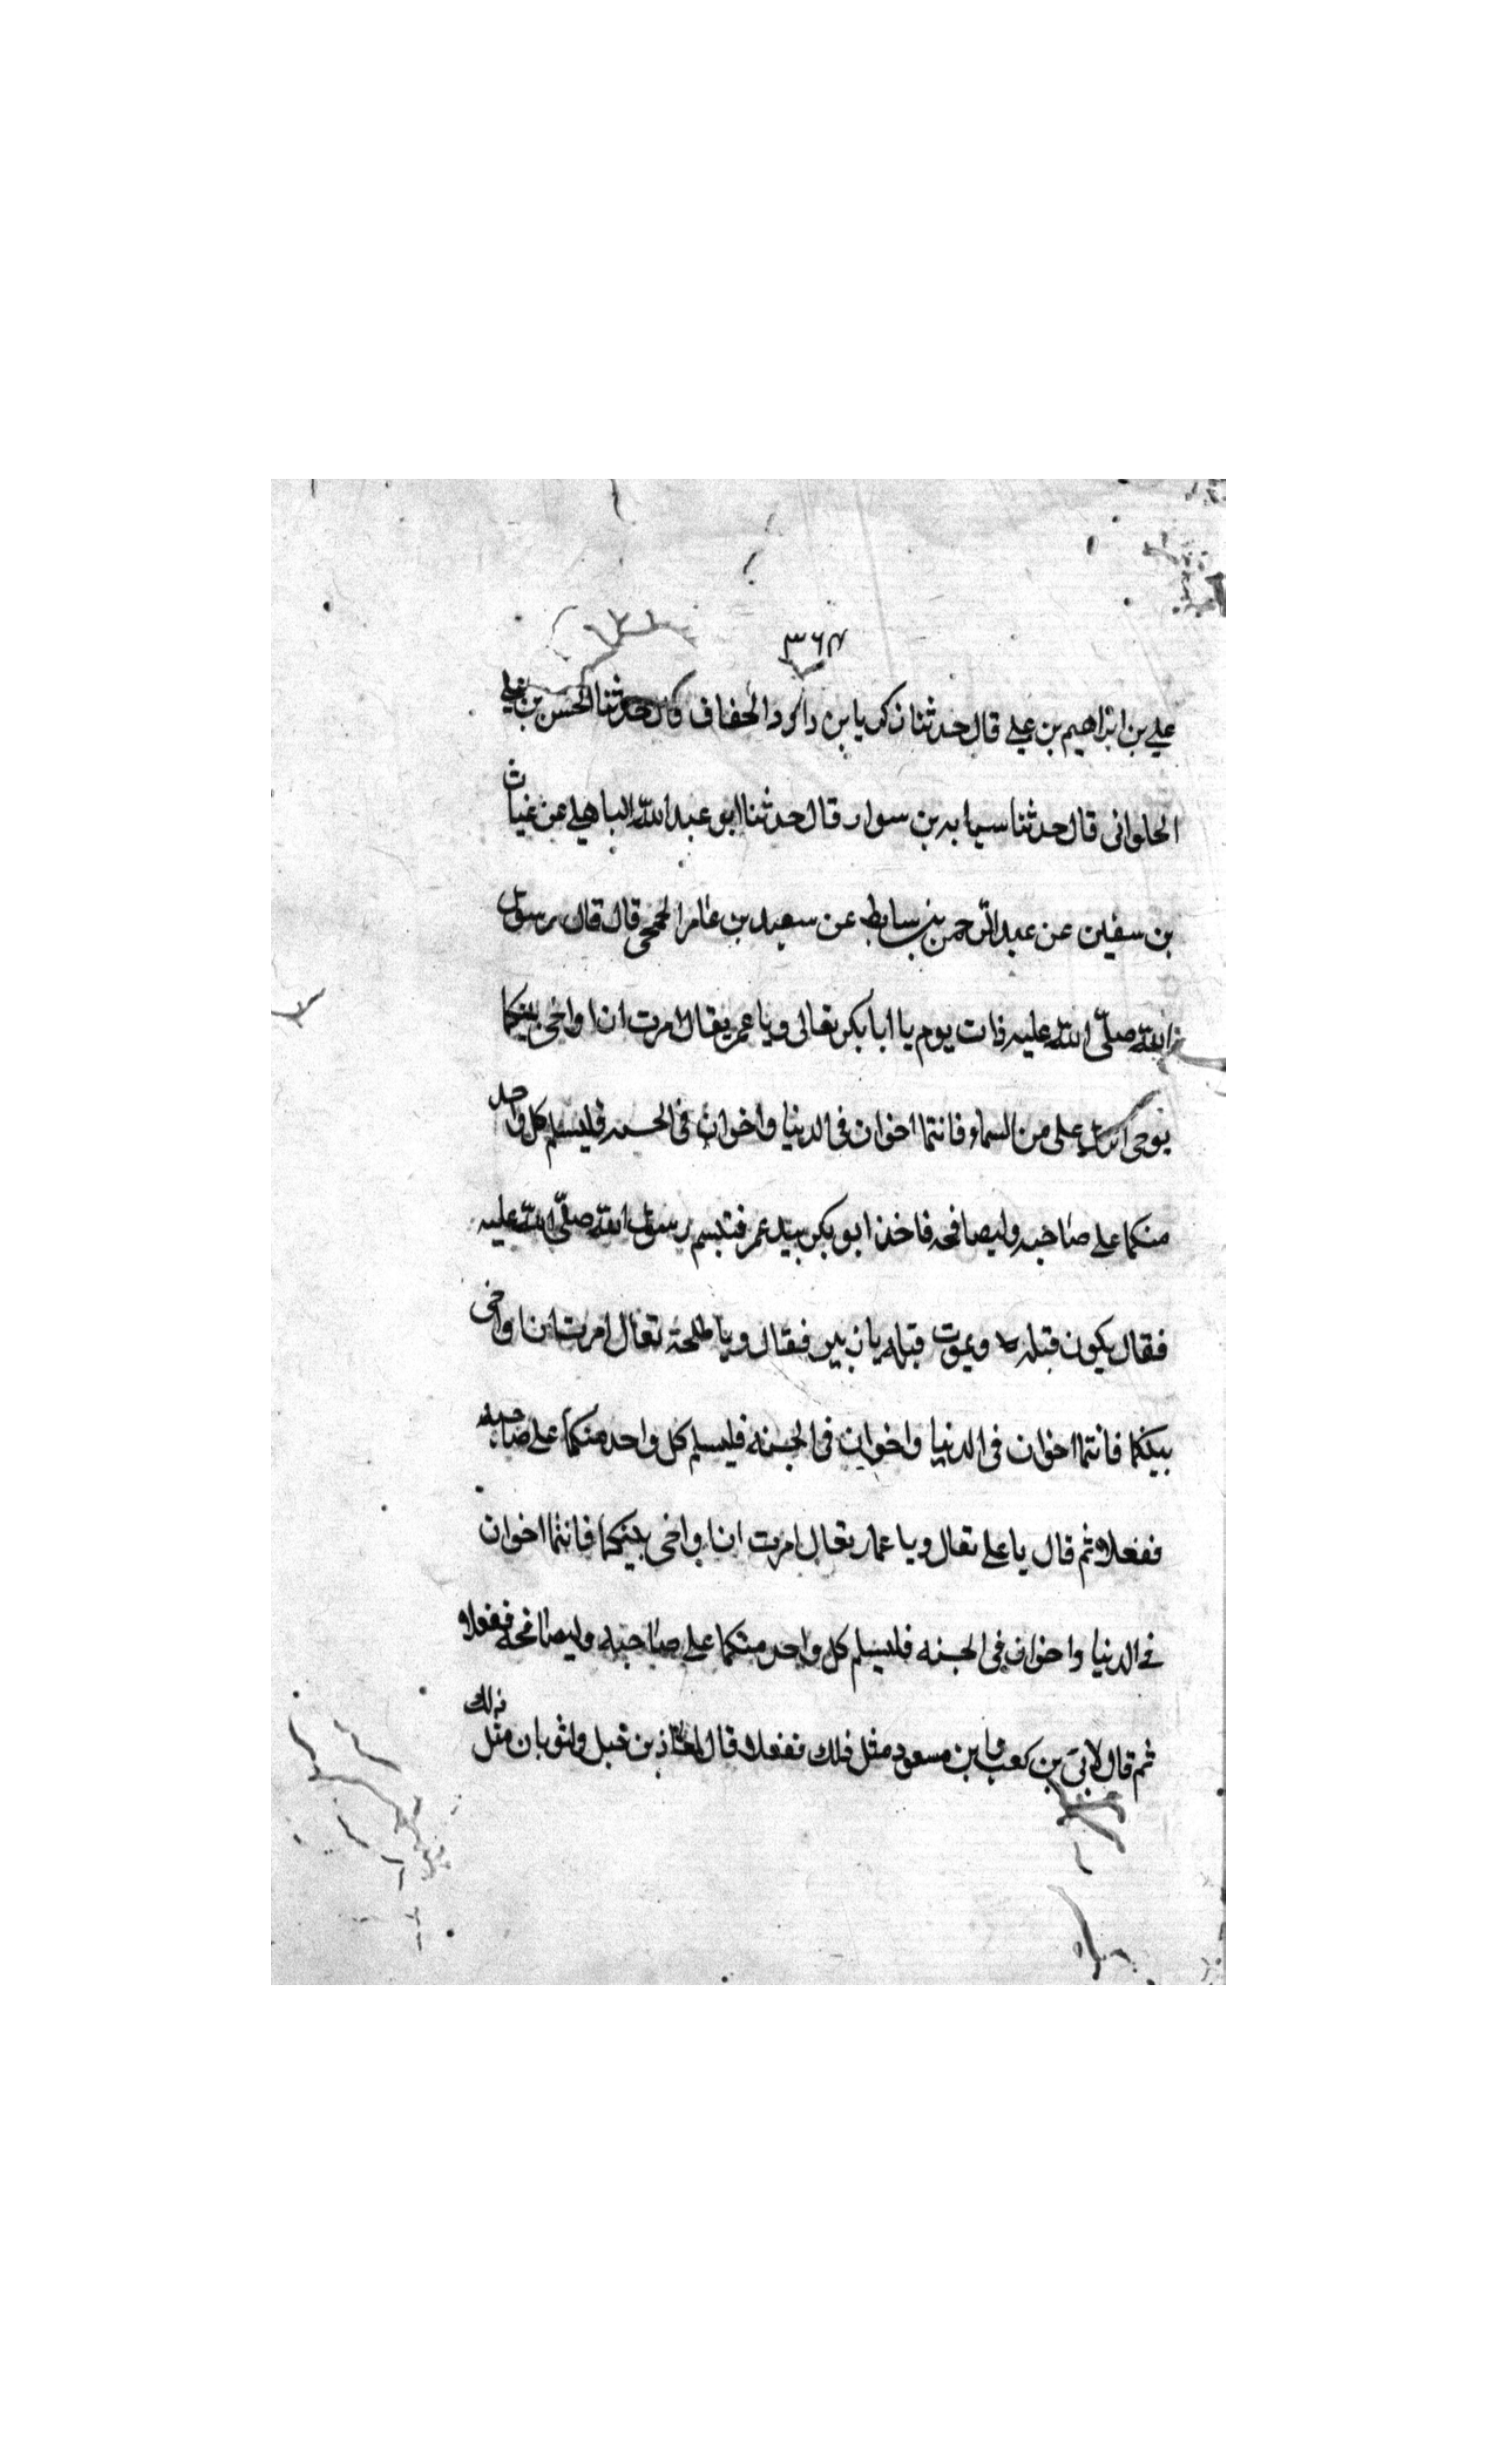 ٣٦٨
علي بن ابراهيم بن علي قال حدثنا زكريا بن داود الخفاف قال حدثنا الحسن بن علي
الحلواني قال حدثنا سبابه بن سوار قال حدثنا ابو عبد الله الباهلي عن غياث
بن سفين عن عبد الرحمن بن سابط عن سعيد بن عامر الجمحي قال قال رسول
الله صلّى الله عليه ذات يوم يا ابا بكر تعالى ويا عمر يقال امرت ان اواخى بينكما
يوحى انزل على من السماء فانتما اخوان فى الدنيا واخوان فى الجنه فليسلم كل واحد
منكما على صاحبه وليصافحه فاخذ ابو بكر بيد عمر فتبسم رسول الله صلّى الله عليه
فقال يكون قبله ويموت قبله يا زبير فقال ويا طلحة تعال امرت ان اواخى
بينكما فانتما اخوان فى الدنيا واخوان فى الجنه فليسلم كل واحد منكما على صاحبه
ففعلا ثم قال يا على تعال ويا عمار تعال امرت ان اواخى بينكما فانتما اخوان
فى الدنيا واخوان فى الجنه فليسلم كل واحد منكما على صاحبه وليصافحه ففعلا
ثم قال لابىّ بن كعب وابن مسعود مثل ذلك ففعلا قال لمعاذ بن جبل ولثوبان مثل ذلك